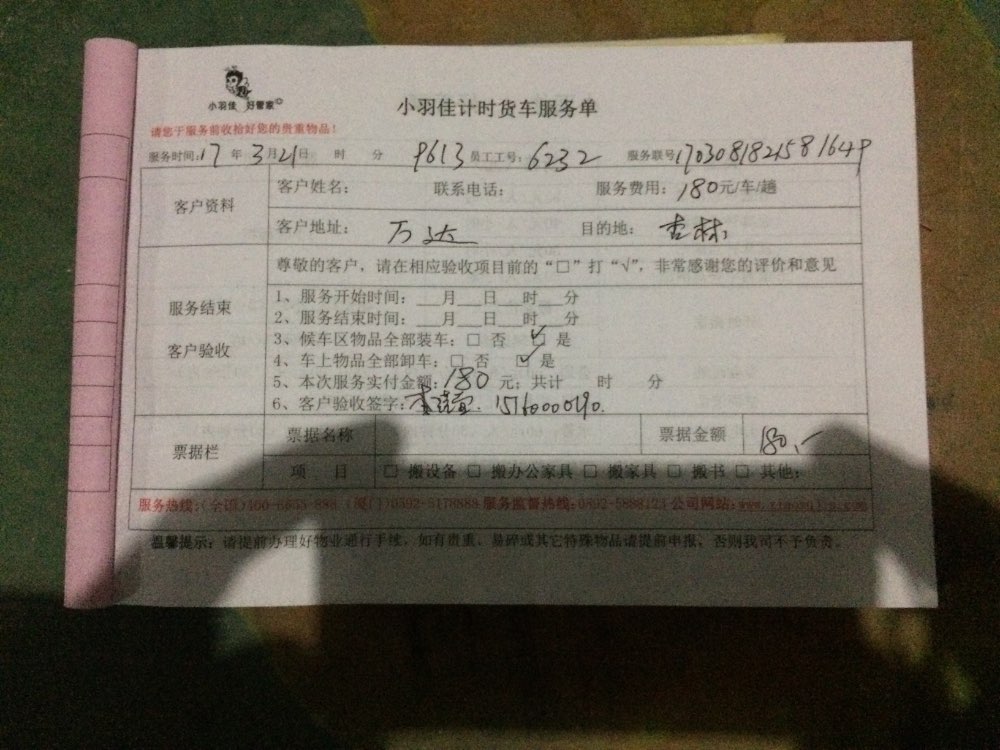 小羽佳 好管家
小羽佳计时货车服务单
请您于服务前收拾好您的贵重物品！
服务时间:17年3月21日 时 分 9613员工工号:6232 服务联号
客户资料
客户姓名： 联系电话： 服务费用：180元/车/趟
客户地址： 万达 目的地： 杏林
服务结束
客户验收
尊敬的客户，请在相应验收项目前的“□”打“√”，非常感谢您的评价和意见
1、服务开始时间：___月___日___时___分
2、服务结束时间：___月___日___时___分
3、候车区物品全部装车：□ 否 ☑ 是
4、车上物品全部卸车：□ 否 ☑ 是
5、本次服务实付金额：180元；共计 时 分
6、客户验收签字：
票据栏
票据名称 票据金额 180.-
项 目 □ 搬设备 □ 搬办公家具 □ 搬家具 □ 搬书 □ 其他：
服务热线：(全国) (厦门)0592-5178888 服务监督热线： 公司网站：
温馨提示：请提前办理好物业通行手续，如有贵重、易碎或其它特殊物品请提前申报，否则我司不予负责。